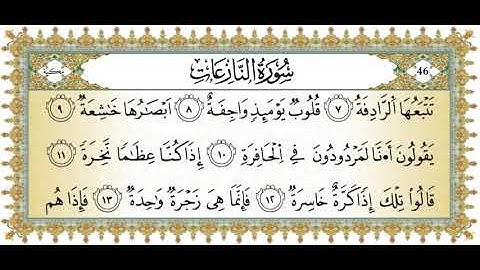 سُورَةُ النَّازِعَات
مكية
46
تَتْبَعُهَا الرَّادِفَةُ ۝٧ قُلُوبٌ يَوْمَئِذٍ وَاجِفَةٌ ۝٨ أَبْصَارُهَا خَاشِعَةٌ ۝٩
يَقُولُونَ أَءِنَّا لَمَرْدُودُونَ فِي الْحَافِرَةِ ۝١٠ إِذَا كُنَّا عِظَامًا نَّخِرَةً ۝١١
قَالُوا تِلْكَ إِذًا كَرَّةٌ خَاسِرَةٌ ۝١٢ فَإِنَّمَا هِيَ زَجْرَةٌ وَاحِدَةٌ ۝١٣ فَإِذَا هُم